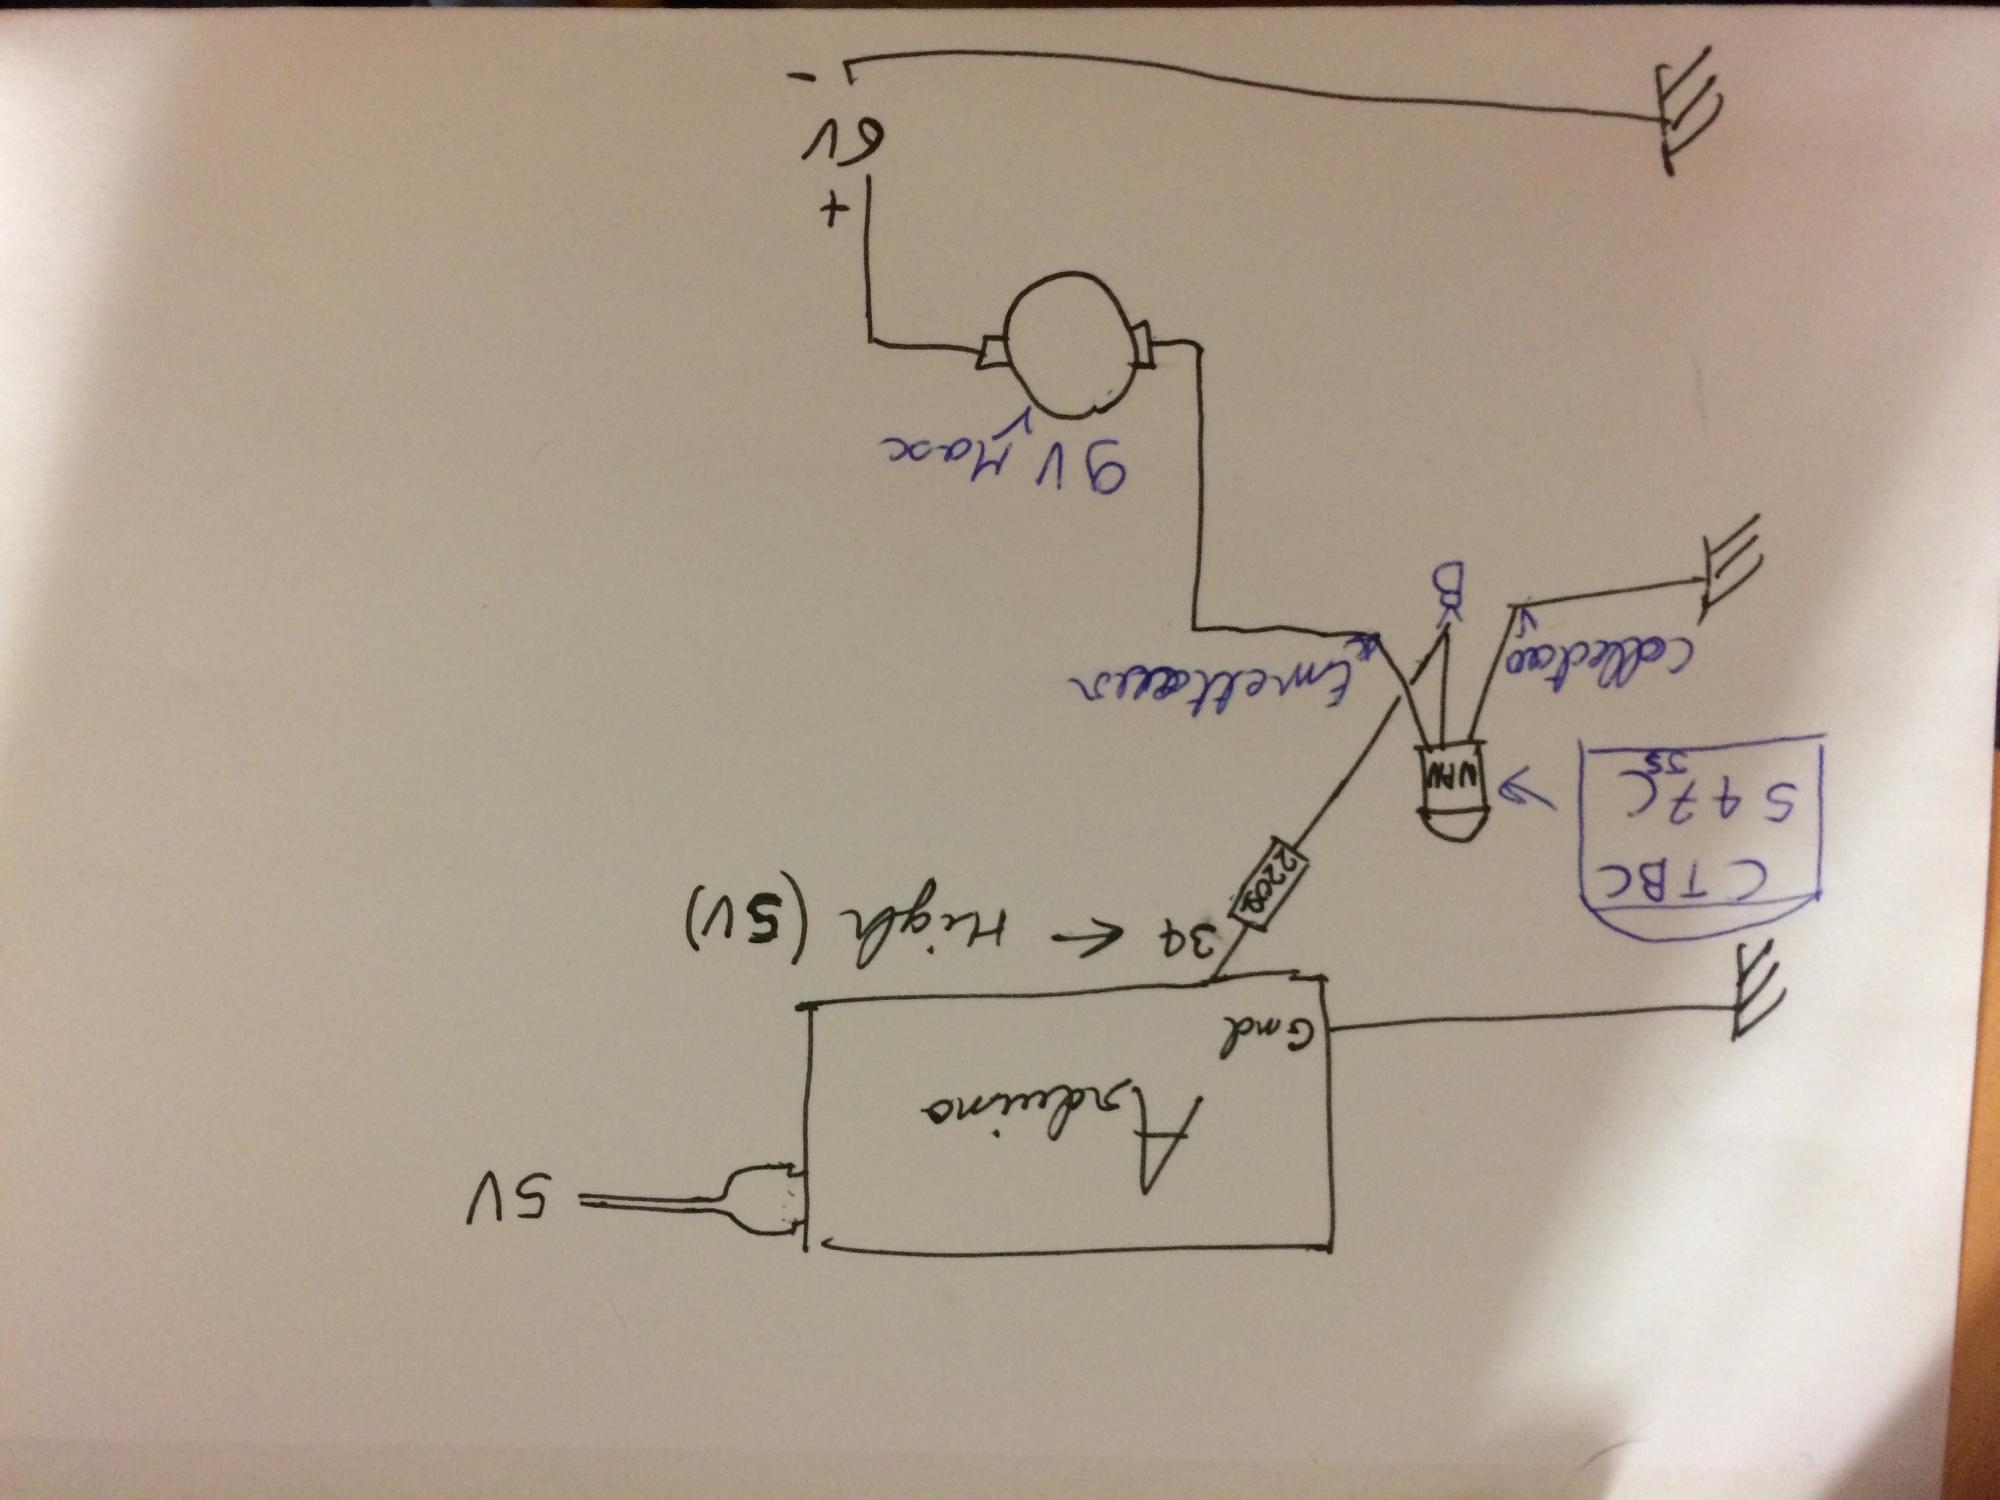 Arduino
5V
Gnd
34 → High (5V)
CTBC
547C
55
220Ω
NPN
Emetteur
B
9V Max
+
6V
-